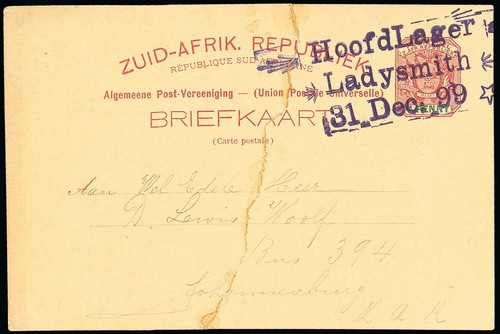 ZUID-AFRIK. REPUBLIEK
RÉPUBLIQUE SUD-AFRICAINE
HoofdLager
Ladysmith
31 Dec. 99
PENNY
Algemeene Post-Vereeniging — (Union Postale Universelle)
BRIEFKAART
(Carte postale)
Aan Wel Edele Heer
D. Lewis Woolf
Bus 394
Johannesburg
Z A R